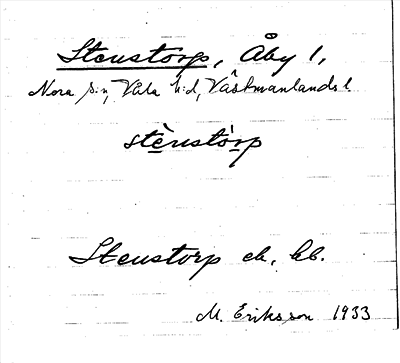 Stenstorp, Åby 1,
Nora s:n, Våla h:d, Västmanlands l.
stènstòrp
Stenstorp ek. kb.
M. Eriksson 1933